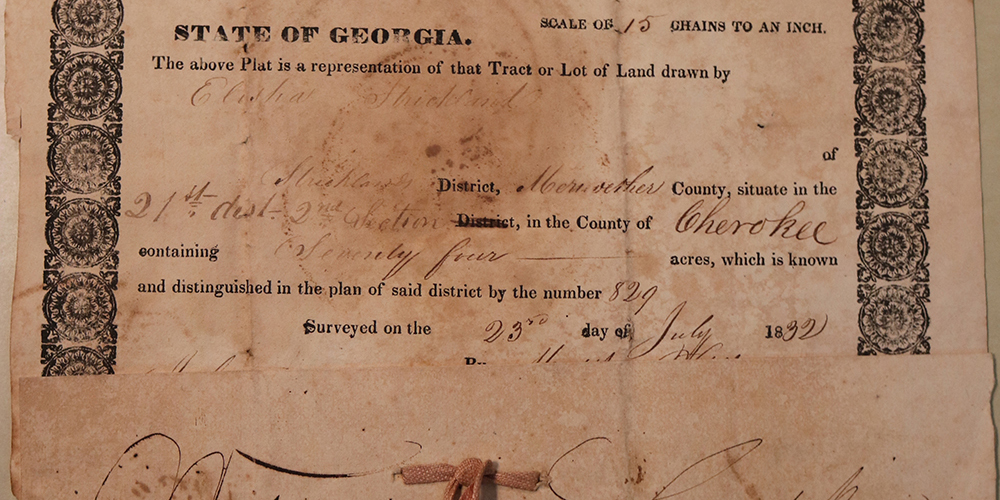 STATE OF GEORGIA.
SCALE OF 15 CHAINS TO AN INCH.
The above Plat is a representation of that Tract or Lot of Land drawn by
Elisha Strickland
of
Stricklands District, Meriwether County, situate in the
21st dist 2nd Section District, in the County of Cherokee
containing Seventy four acres, which is known
and distinguished in the plan of said district by the number 829
Surveyed on the 23rd day of July 1832
By